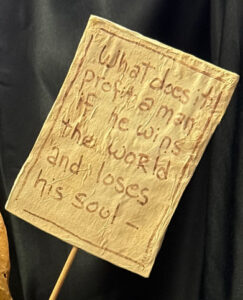 What does it
profit a man
if he wins
the world
and loses
his soul -